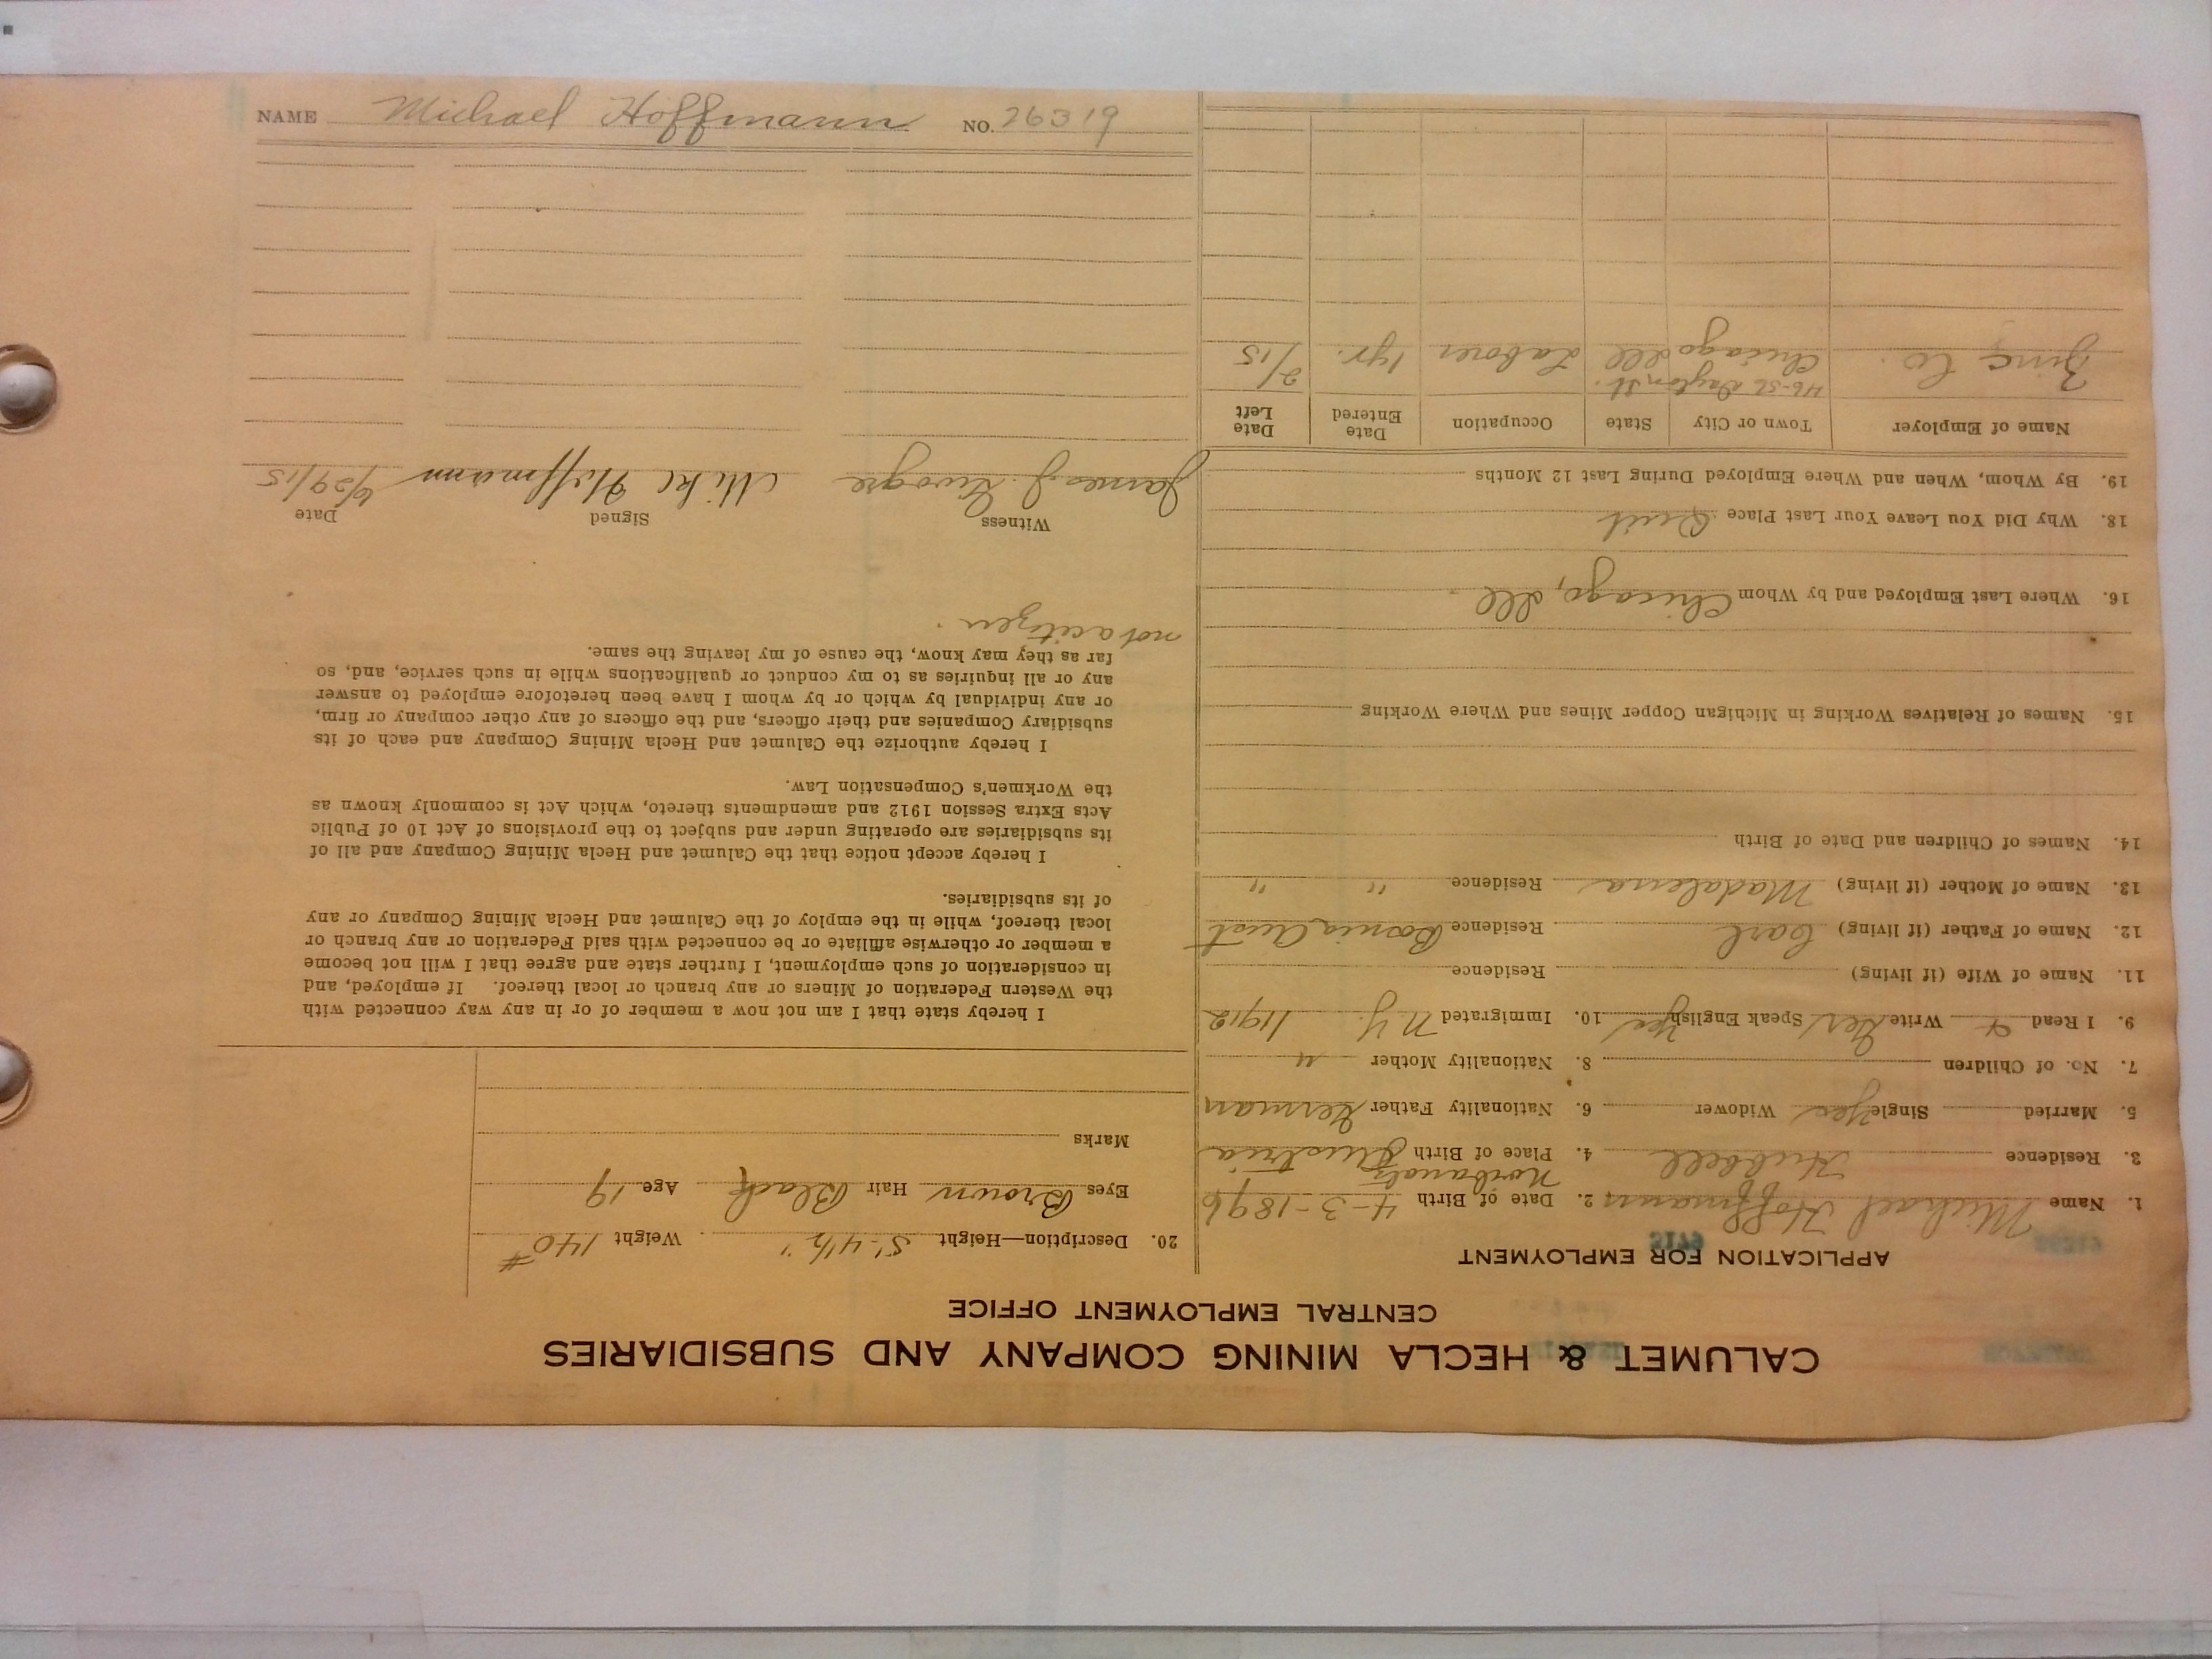 CALUMET & HECLA MINING COMPANY AND SUBSIDIARIES
CENTRAL EMPLOYMENT OFFICE
APPLICATION FOR EMPLOYMENT
1. Name Michael Hoffmann 2. Date of Birth 4-3-1896
3. Residence Hubbell 4. Place of Birth Austria
5. Married Single Yes Widower 6. Nationality Father German
7. No. of Children 8. Nationality Mother "
9. I Read & Write Ger Speak English Yes 10. Immigrated N.Y. 1912
11. Name of Wife (if living) Residence
12. Name of Father (if living) Carl Residence Bosnia Aust
13. Name of Mother (if living) Madalena Residence " "
14. Names of Children and Date of Birth
15. Names of Relatives Working in Michigan Copper Mines and Where Working
16. Where Last Employed and by Whom Chicago, Ill
18. Why Did You Leave Your Last Place Quit
19. By Whom, When and Where Employed During Last 12 Months
Name of Employer Town or City State Occupation Date Entered Date Left
46-St. Dayton St.
Zinc Co. Chicago Ill Laborer 1 yr. 2/15
20. Description—Height 5'-4½" Weight 140#
Eyes Brown Hair Black Age 19
Marks
I hereby state that I am not now a member of or in any way connected with
the Western Federation of Miners or any branch or local thereof. If employed, and
in consideration of such employment, I further state and agree that I will not become
a member or otherwise affiliate or be connected with said Federation or any branch or
local thereof, while in the employ of the Calumet and Hecla Mining Company or any
of its subsidiaries.
I hereby accept notice that the Calumet and Hecla Mining Company and all of
its subsidiaries are operating under and subject to the provisions of Act 10 of Public
Acts Extra Session 1912 and amendments thereto, which Act is commonly known as
the Workmen's Compensation Law.
I hereby authorize the Calumet and Hecla Mining Company and each of its
subsidiary Companies and their officers, and the officers of any other company or firm,
or any individual by which or by whom I have been heretofore employed to answer
any or all inquiries as to my conduct or qualifications while in such service, and, so
far as they may know, the cause of my leaving the same.
not a citizen.
Witness Signed Date
James J. Mike Hoffmann 6/29/15
NAME Michael Hoffmann NO. 26319